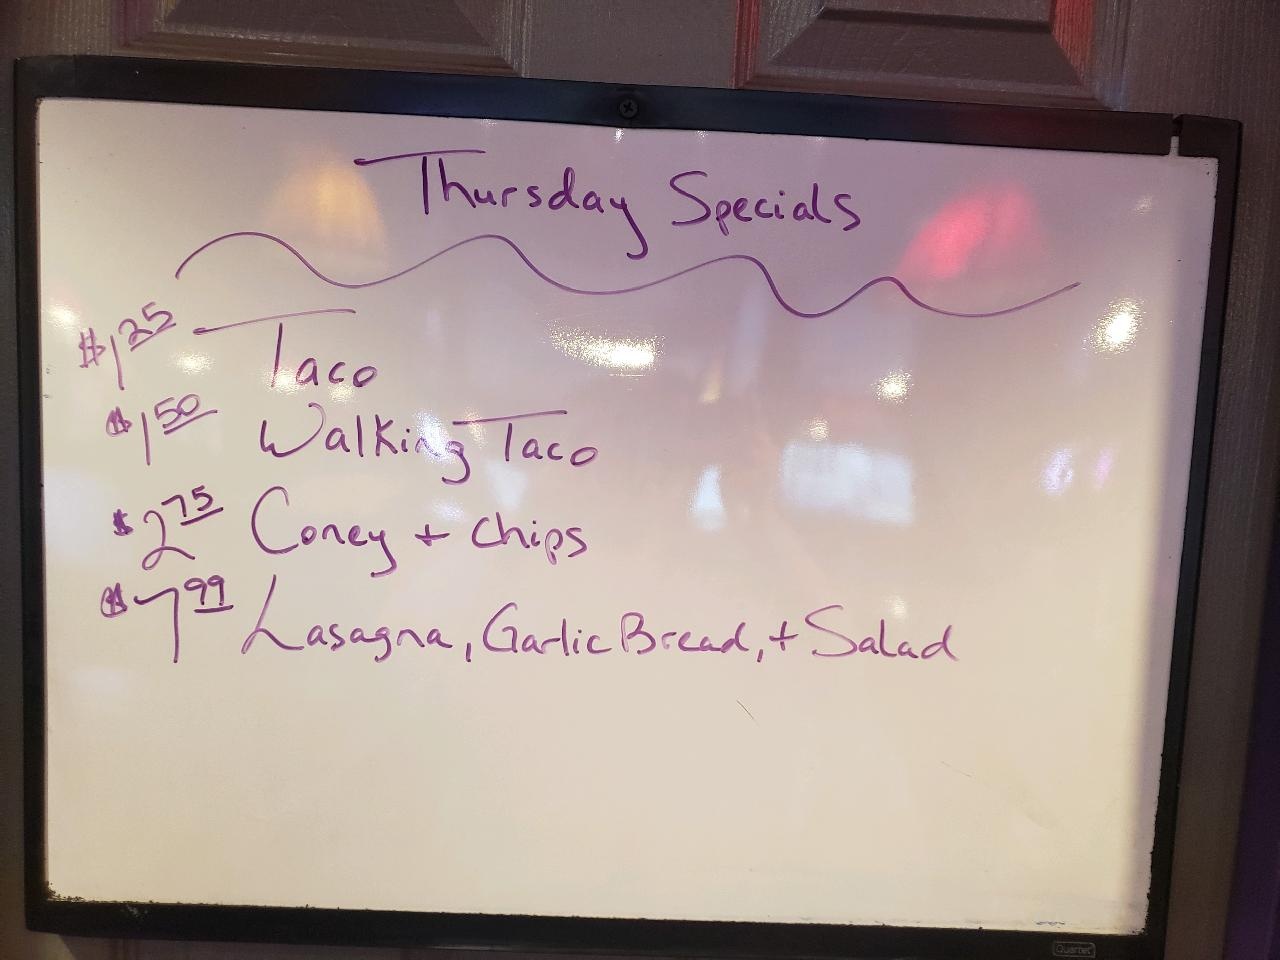 Thursday Specials
$1.25 Taco
$1.50 Walking Taco
$2.75 Coney + Chips
$7.99 Lasagna, Garlic Bread, + Salad
Quartet